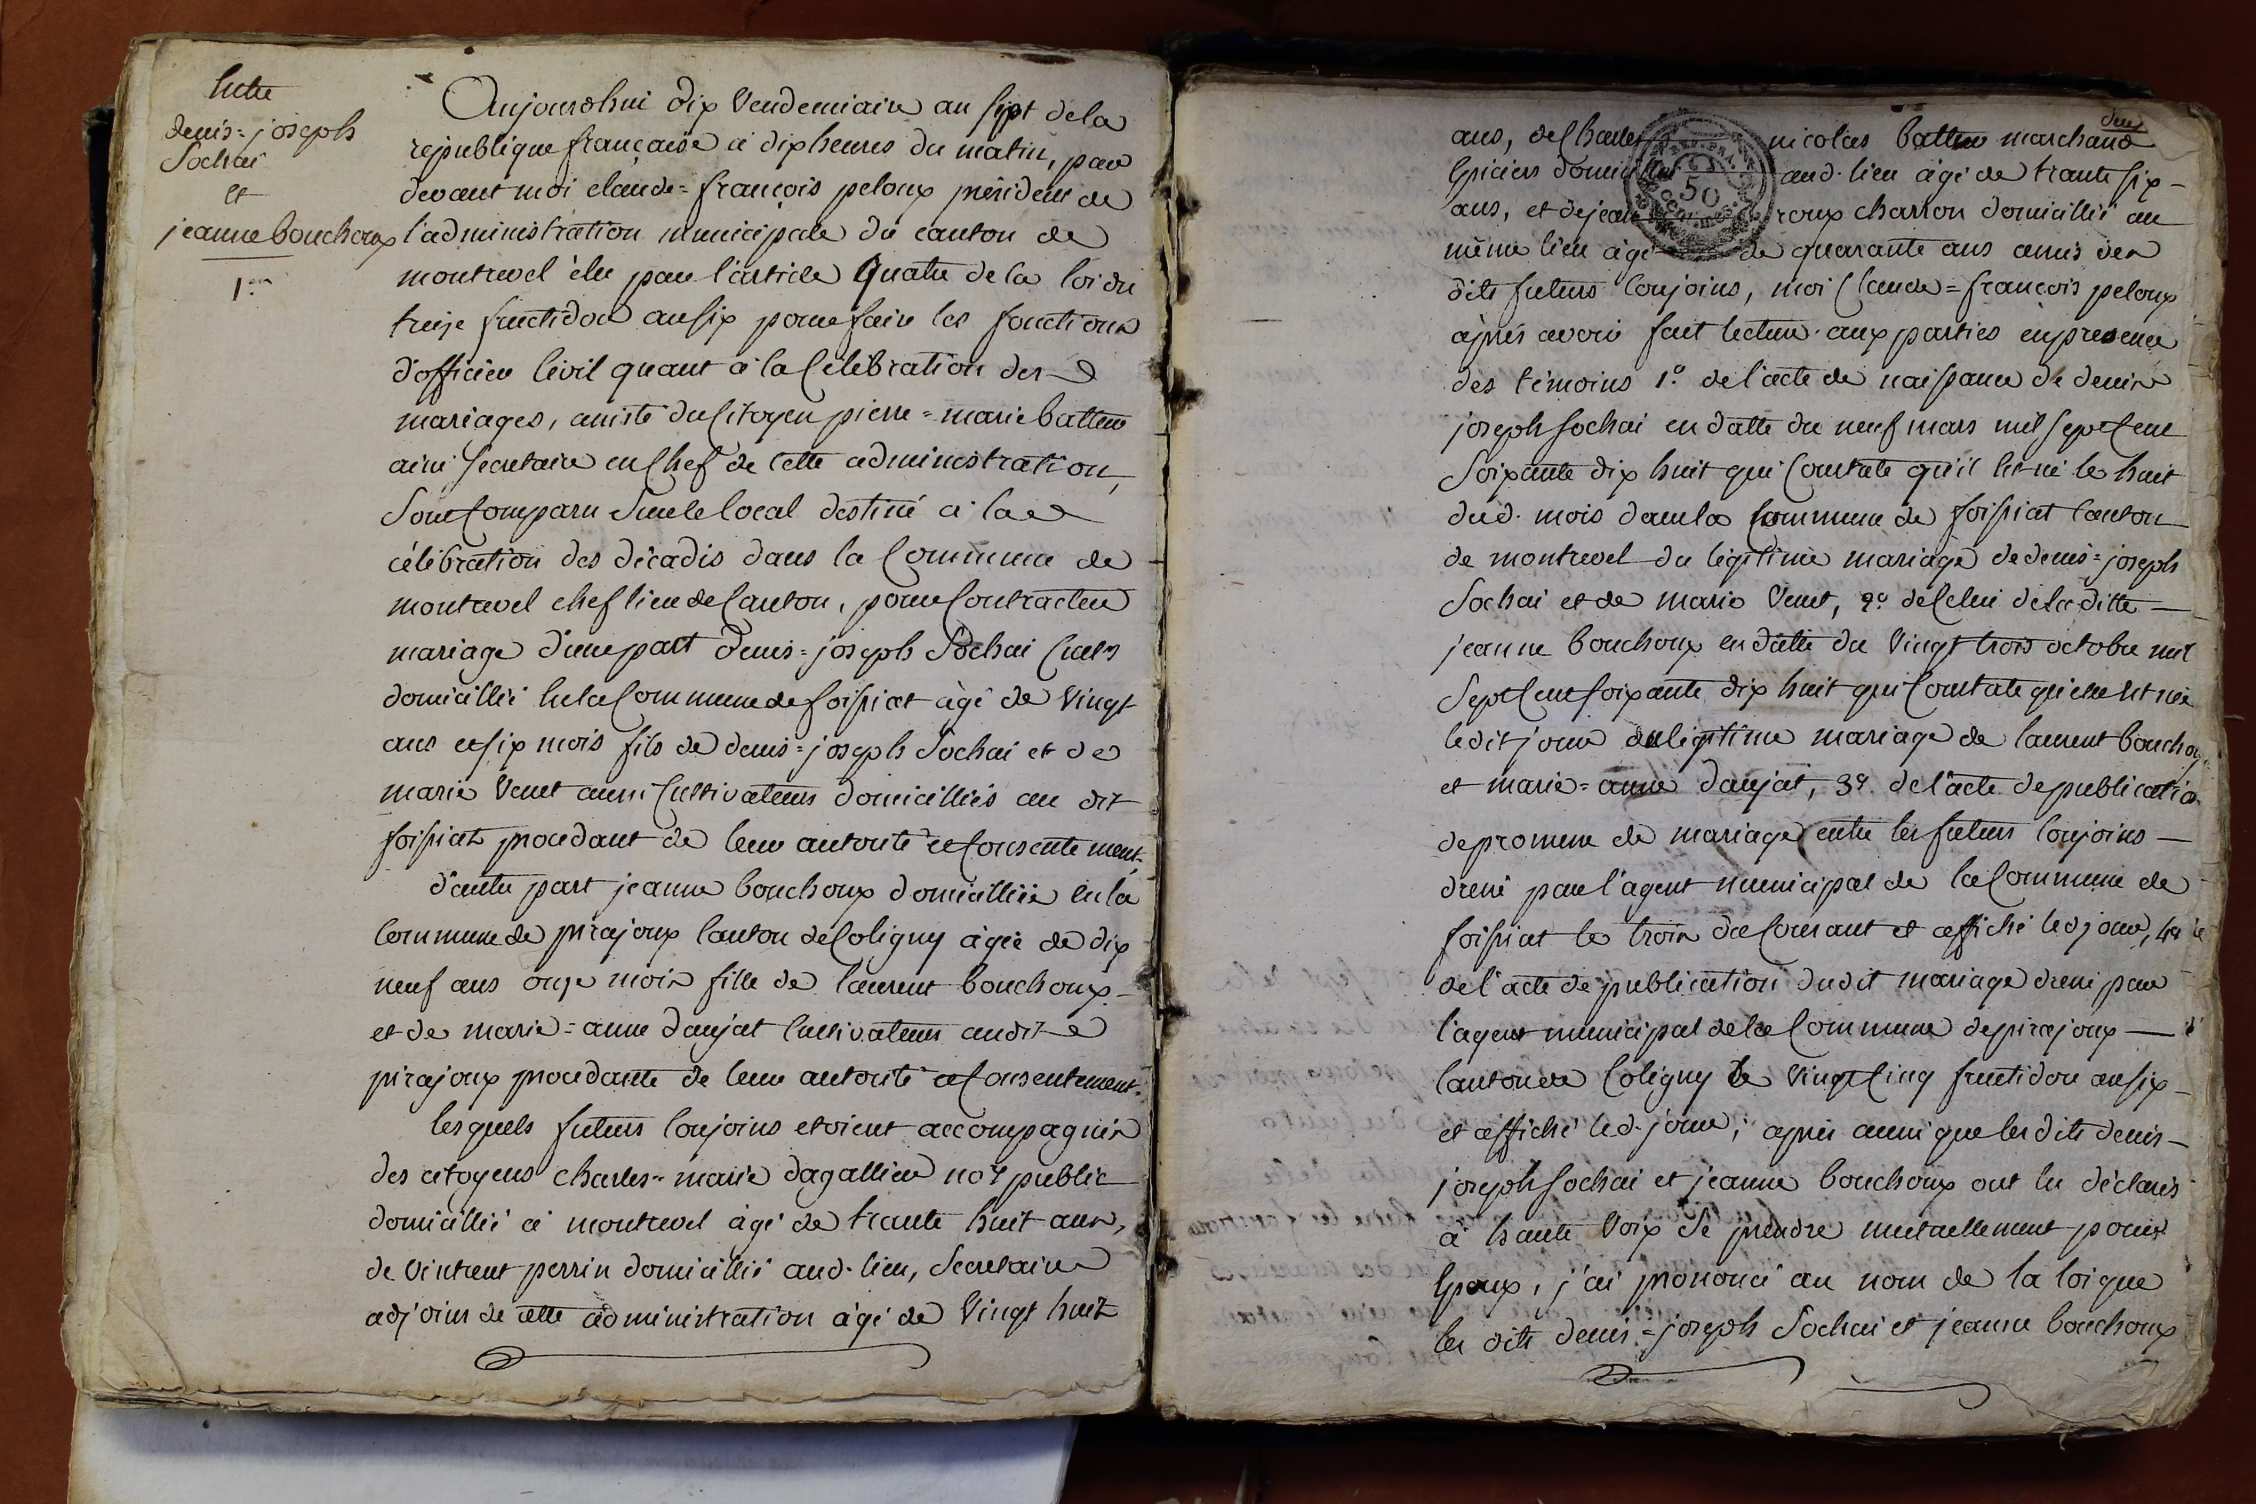 Entre
denis=joseph
Sochai
et
jeanne bouchoux
1.er
Aujourdhui dix Vendemiaire an sept de la
republique française à dix heures du matin, par
devant moi claude=françois peloux président de
l'administration municipale du canton de
montrevel élu par l'article Quatre de la loi du
treize fructidor an six pour faire les fonctions
d'officier Civil quant à la Célébration des
mariages, assisté du Citoyen pierre=marie batteu
ainé secretaire en Chef de cette administration,
Sont Comparu Sur le local destiné à la
célébration des décadis dans la Commune de
montrevel chef lieu de Canton, pour Contracter
mariage d'une part denis=joseph Sochai Cult.r
domicillié en la Commune de foissiat âgé de Vingt
ans et six mois fils de denis=joseph Sochai et de
marie Venet aussi Cultivateurs domicilliés au dit
foissiat procedant de leur autorité et Consentement.
d'autre part jeanne bouchoux domicilliée en la
Commune de pirajoux Canton de Coligny âgée de dix
neuf ans onze mois fille de laurent bouchoux
et de marie=anne daujat Cultivateurs audit
pirajoux procedante de leur autorité et Consentement.
lesquels futurs Conjoins etoient accompagnés
des citoyens charles=marie dagallier no.re public
domicillié à montrevel âgé de trante huit ans,
de Vintrent perrin domicillié aud. lieu, Secretaire
adjoins de cette administration âgé de Vingt huit
deux
ans, de Charles nicolas batteu marchand
Epiciers domicillié aud. lieu âgé de trante six
ans, et de jean roux charron domicillié au
même lieu âgé de quarante ans amis des
dits futurs Conjoins, moi Claude=françois peloux
après avoir fait lecture aux parties en presence
des témoins 1.o de l'acte de naissance de denis
joseph sochai en datte du neuf mars mil sept Cent
Soixante dix huit qui Constate qu'il Est né le huit
dud. mois dans la Commune de foissiat Canton
de montrevel du légitime mariage de denis=joseph
Sochai et de marie Venet, 2.o de Celui de la ditte
jeanne bouchoux en datte du Vingt trois octobre mil
Sept Cent soixante dix huit qui Constate qu'elle Est née
ledit jour du légitime mariage de laurent bouchoux
et marie=anne daujat, 3.o de l'acte de publication
de promesse de mariage entre les futurs Conjoins
dressé par l'agent municipal de la Commune de
foissiat le trois du Courant et affiché led jour, 4.o
de l'acte de publication dudit mariage dressé par
l'agent municipal de la Commune de pirajoux
Canton de Coligny le Vingt Cinq fructidor an six
et affiché led. jour; après aussi que les dits denis
joseph sochai et jeanne bouchoux ont Eu déclarés
à haute Voix Se prendre mutuellement pour
Epoux, j'ai prononcé au nom de la loi que
les dits denis=joseph Sochai et jeanne bouchoux